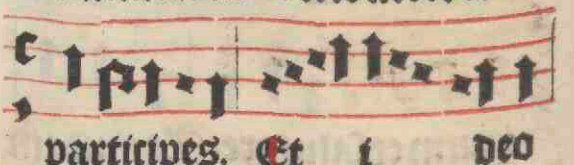 participes. Et i deo